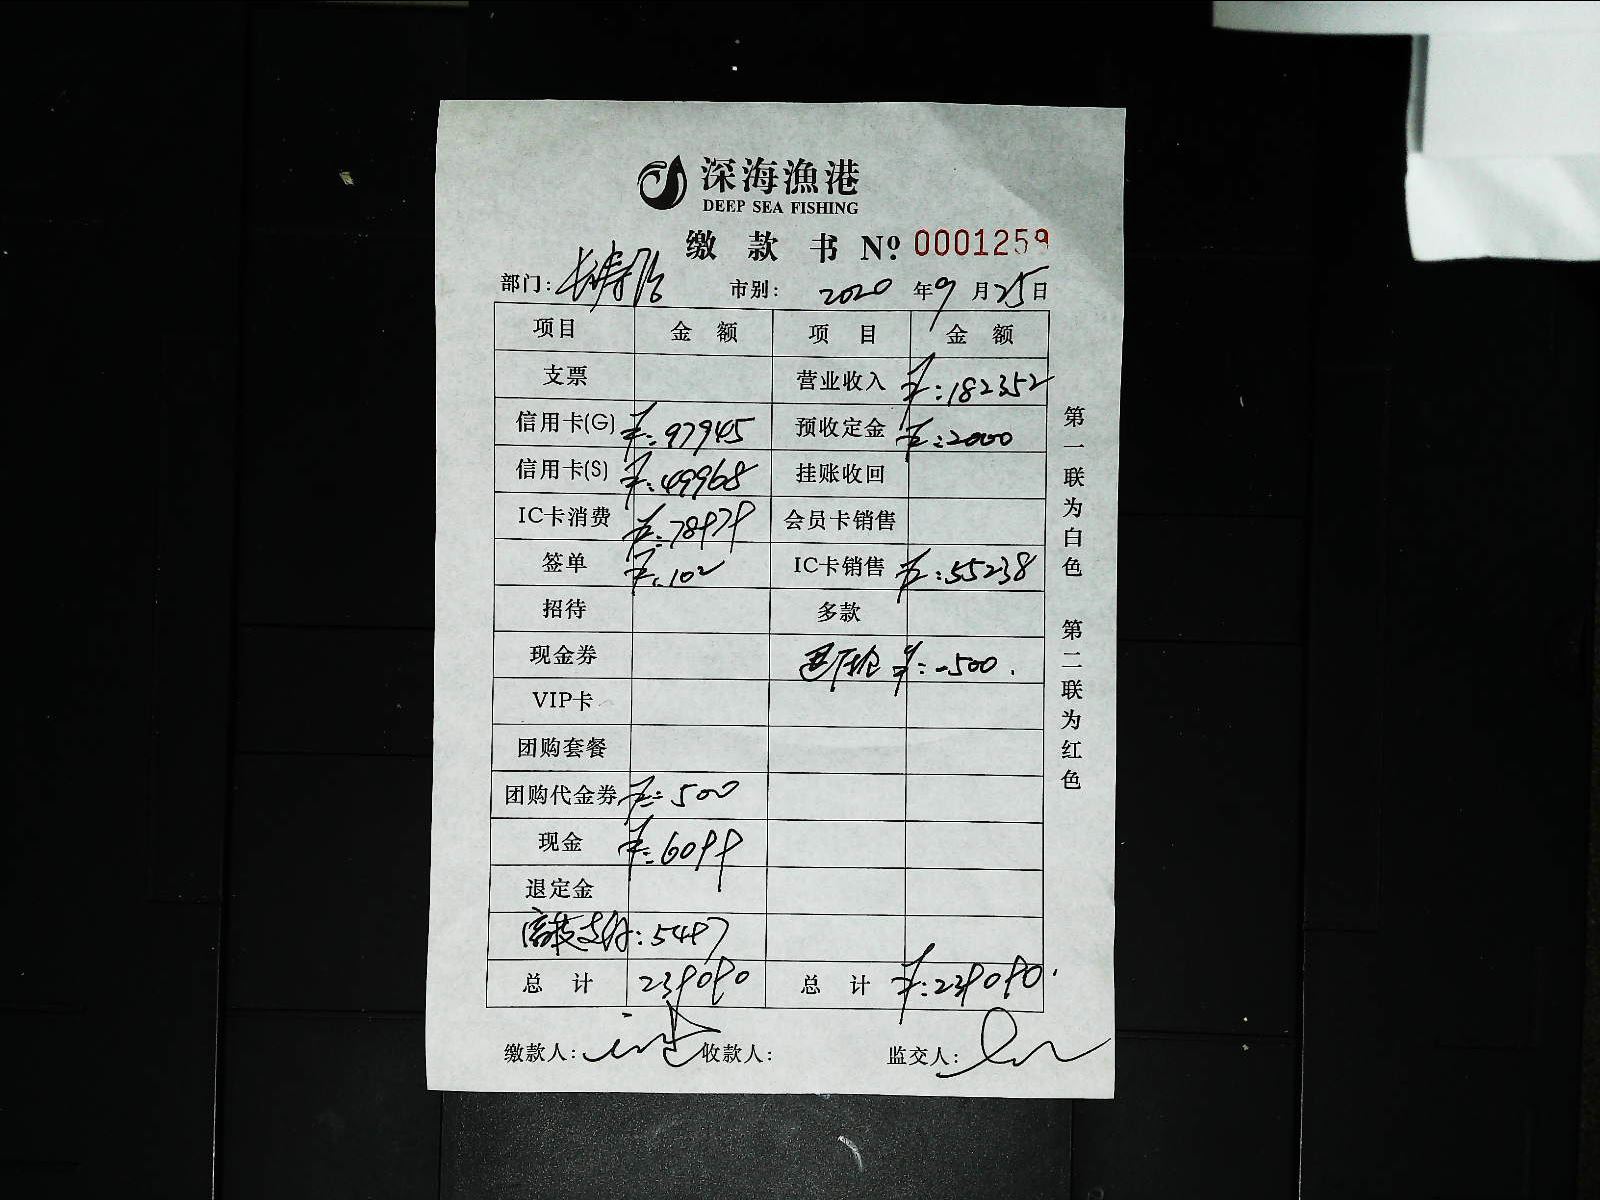 深海漁港
DEEP SEA FISHING
缴款书 Nº 0001259
部门: 长寿路 市别: 2020 年 9 月 25 日
项目 金额 项目 金额
支票 营业收入 ¥:182352
信用卡(G) ¥:97945 预收定金 ¥:2000
信用卡(S) ¥:49968 挂账收回
IC卡消费 ¥:78979 会员卡销售
签单 ¥:102 IC卡销售 ¥:55238
招待 多款
现金券 ¥:-500.
VIP卡
团购套餐
团购代金券 ¥:500
现金 ¥:6099
退定金
支付:5497
总计 239090 总计 ¥:239090.
缴款人: 收款人: 监交人:
第一联为白色 第二联为红色